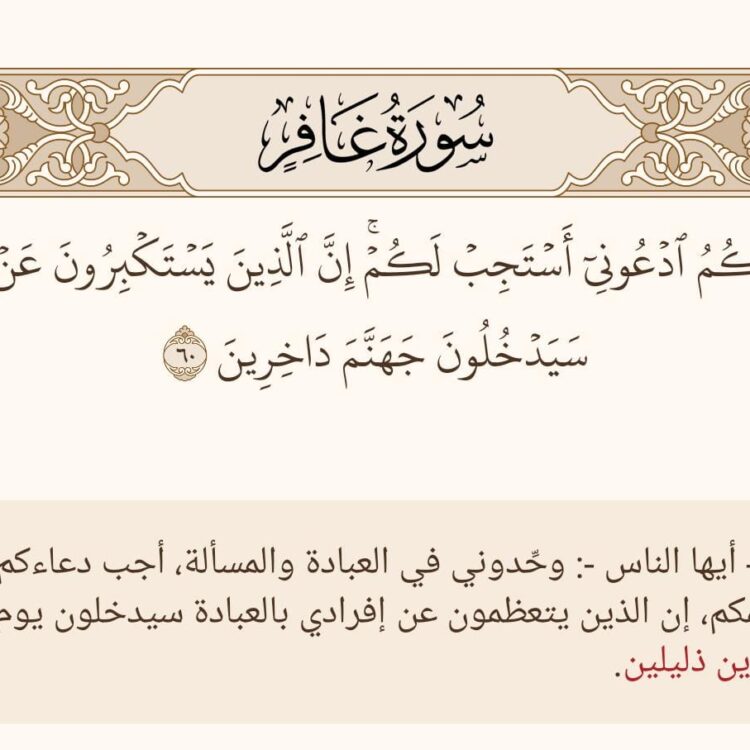 سُورَةُ غَافِرٍ
كُمُ ٱدۡعُونِيٓ أَسۡتَجِبۡ لَكُمۡۚ إِنَّ ٱلَّذِينَ يَسۡتَكۡبِرُونَ عَنۡ
سَيَدۡخُلُونَ جَهَنَّمَ دَاخِرِينَ ٦٠
- أيها الناس -: وحِّدوني في العبادة والمسألة، أجب دعاءكم
كم، إن الذين يتعظمون عن إفرادي بالعبادة سيدخلون يوم
ين ذليلين.